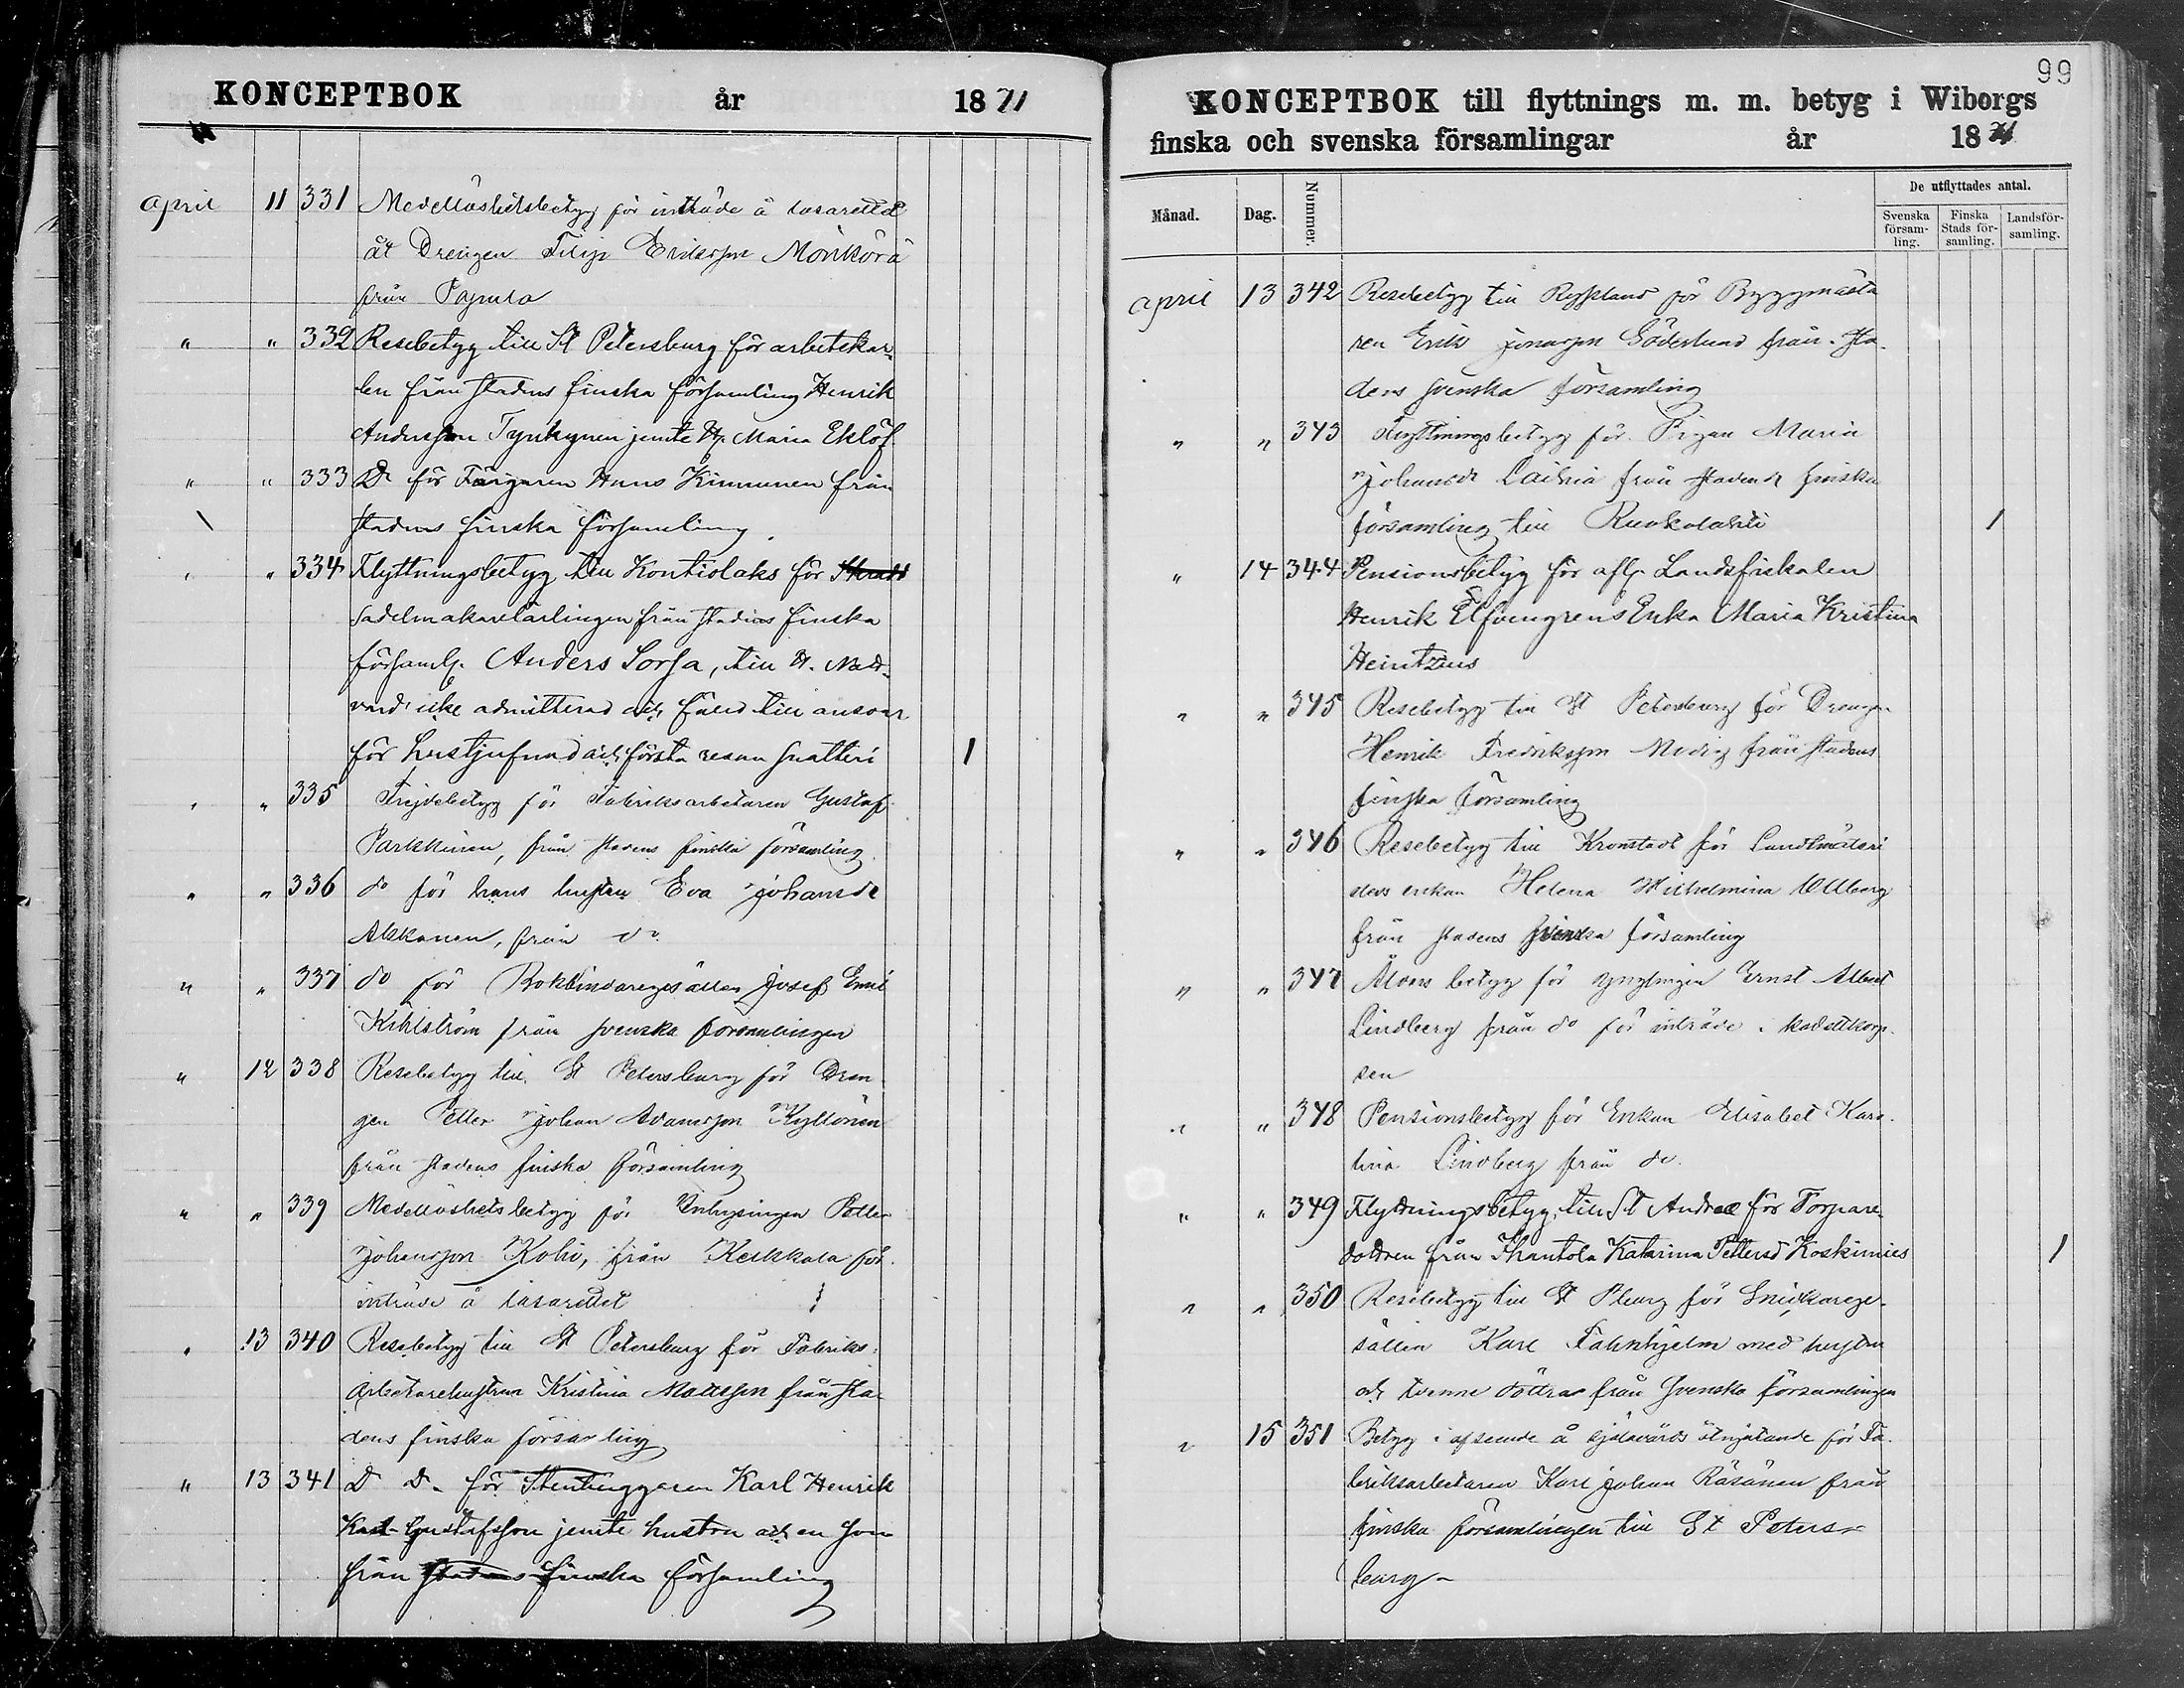 KONCEPTBOK år 1871
april 11 331 Medellöshetsbetyg för inträde å lasarettet
åt Drengen Filip Eriksson Mönkörä
från Papula
" " 332 Resebetyg till St Petersburg för arbetskar-
len från stadens finska församling Henrik
Andersson Tynkynen jemte H. Maria Eklöf
" " 333 Do för Färgaren Hans Kimmunen från
stadens finska församling.
" " 334 Flyttningsbetyg till Kontiolaks för
Sadelmakarelärlingen från stadens finska
församl. Anders Sorsa, till H. Natt-
vard icke admitterad och fäld till ansvar
för hustjufnad och första resan snatteri 1
" " 335 Frejdebetyg för Fabriksarbetaren Gustaf
Parkkinen, från stadens finska församling
" " 336 do för hans hustru Eva Johansdr
Akkanen, från do
" " 337 do för Bokbindaregesällen Josef Emil
Kihlström från svenska församlingen
" 12 338 Resebetyg till St Petersburg för Dren-
gen Petter Johan Adamsson Kyllönen
från stadens finska församling
" " 339 Medellöshetsbetyg för Inhysingen Petter
Johansson Kohi, från Keikkala för
inträde å lasarettet
" 13 340 Resebetyg till St Petersburg för Fabriks-
Arbetarehustrun Kristina Mattsson från sta-
dens finska församling
" 13 341 D D. för Stenhuggaren Karl Henrik
Karl Gustafsson jemte hustru och en son
från stadens finska församling
99
KONCEPTBOK till flyttnings m. m. betyg i Wiborgs
finska och svenska församlingar år 1871
Månad. Dag. Nummer. De utflyttades antal.
Svenska försam-ling. Finska Stads för-samling. Landsför-samling.
april 13 342 Resebetyg till Ryssland för Byggmästa
ren Erik Jonasson Söderlund från sta-
dens svenska församling
" " 343 Flyttningsbetyg för Pigan Maria
Johansdr Laihia från stadens finska
församling till Ruokolahti 1
" 14 344 Pensionsbetyg för afl. Landsfiskalen
Henrik Elfvengrens Enka Maria Kristina
Heintzius
" " 345 Resebetyg till St Petersburg för Drengen
Henrik Fredriksson Modig från stadens
finska församling
" " 346 Resebetyg till Kronstadt för Landtmäteri
elevs enkan Helena Wilhelmina Wllberg
från stadens svenska församling
" " 347 Ålders betyg för ynglingen Ernst Albert
Lindberg från do för inträde i kadettkorp-
sen
" " 348 Pensionsbetyg för Enkan Elisabet Karo-
lina Lindberg från do.
" " 349 Flyttningsbetyg till St Andreæ för Torpare-
dottren från Ihantola Katarina Pettersd Koskimies 1
" " 350 Resebetyg till St Pburg för Snickarege-
sällen Karl Fahnhjelm med hustru
och tvenne döttrar från svenska församlingen
" 15 351 Betyg i afseende å själavårds åtnjutande för Fa-
briksarbetaren Karl Johan Räsänen från
finska församlingen till St Peters-
burg-